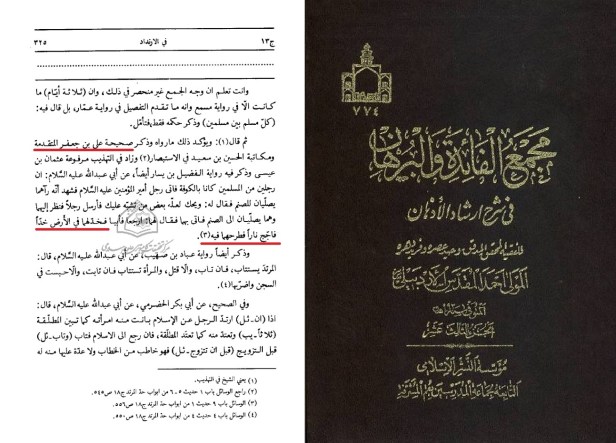 ج١٣ في الارتداد ٣٢٥
وانت تعلم ان وجه الجمع غير منحصر في ذلك، وان (ثلاثة أيّام) ما
كانت الّا في رواية مسمع وانه ما تقدم التفصيل في رواية عمّار، بل قال فيه:
(كلّ مسلم بين مسلمين) وذكر حكمه فقط، فتأمّل.
ثم قال(١): ويؤكد ذلك ما رواه وذكر صحيحة علي بن جعفر المتقدمة
ومكاتبة الحسين بن سعيد في الاستبصار(٢) وزاد في التهذيب مرفوعة عثمان بن
عيسى وذكر فيه رواية الفضيل بن يسار أيضاً، عن أبي عبدالله عليه السّلام أن
رجلين من المسلمين كانا بالكوفة فاتى رجل أمير المؤمنين عليه السّلام فشهد أنّه رآهما
يصلّيان للصنم فقال له: ويحك لعلّه بعض من تشبّه عليك فأرسل رجلاً فنظر إليهما
وهما يصلّيان الى الصنم فاتى بهما فقال لهما: ارجعا فأبيا فخدّ لهما في الأرض خدّاً
فأجّج ناراً فطرحهما فيه(٣).
وذكر أيضاً رواية عباد بن صهيب، عن أبي عبدالله عليه السّلام، قال:
المرتد يستتاب، فان تاب، والّا قتل، والمرأة تستتاب فان تابت، والّا حبست في
السجن واضرّبها(٤).
وفي الصحيح، عن أبي بكر الحضرمي، عن أبي عبدالله عليه السّلام، قال:
اذا (ان ـ ئل) ارتدّ الرجل عن الإسلام بانت منه امرأته كما تبين المطلّقة
(ثلاثاً ـ يب) وتعتدّ منه كما تعتد المطلقة، فان رجع الى الاسلام فتاب (وتاب ـ ئل)
قبل التزويج (قبل ان تتزوج ـ ئل) فهو خاطب من الخطاب ولا عدّة عليها منه له
(١) يعني الشيخ في التهذيب.
(٢) راجع الوسائل باب ١ حديث ٥ ـ ٦ من ابواب حدّ المرتد ج١٨ ص٥٤٥.
(٣) الوسائل باب ٩ حديث ١ من ابواب حدّ المرتد ج١٨ ص٥٥٦.
(٤) الوسائل باب ٤ حديث ٤ من ابواب حدّ المرتد ج١٨ ص٥٥٠.
٧٧٤
مجمع الفائدة والبرهان
في شرح ارشاد الأذهان
للفقيه المحقق المدقق وحيد عصره وفريد دهره
المولى احمد المقدس الأردبيلي
الجزء الثالث عشر
مؤسسة النشر الإسلامي
التابعة لجماعة المدرسين بقم المشرفة